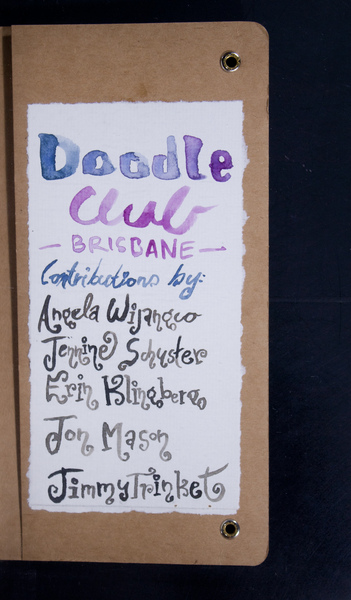 Doodle
Club
— BRISBANE —
Contributions by:
Angela Wijangco
Jennine Schuster
Erin Klingberg
Jon Mason
Jimmy Trinket